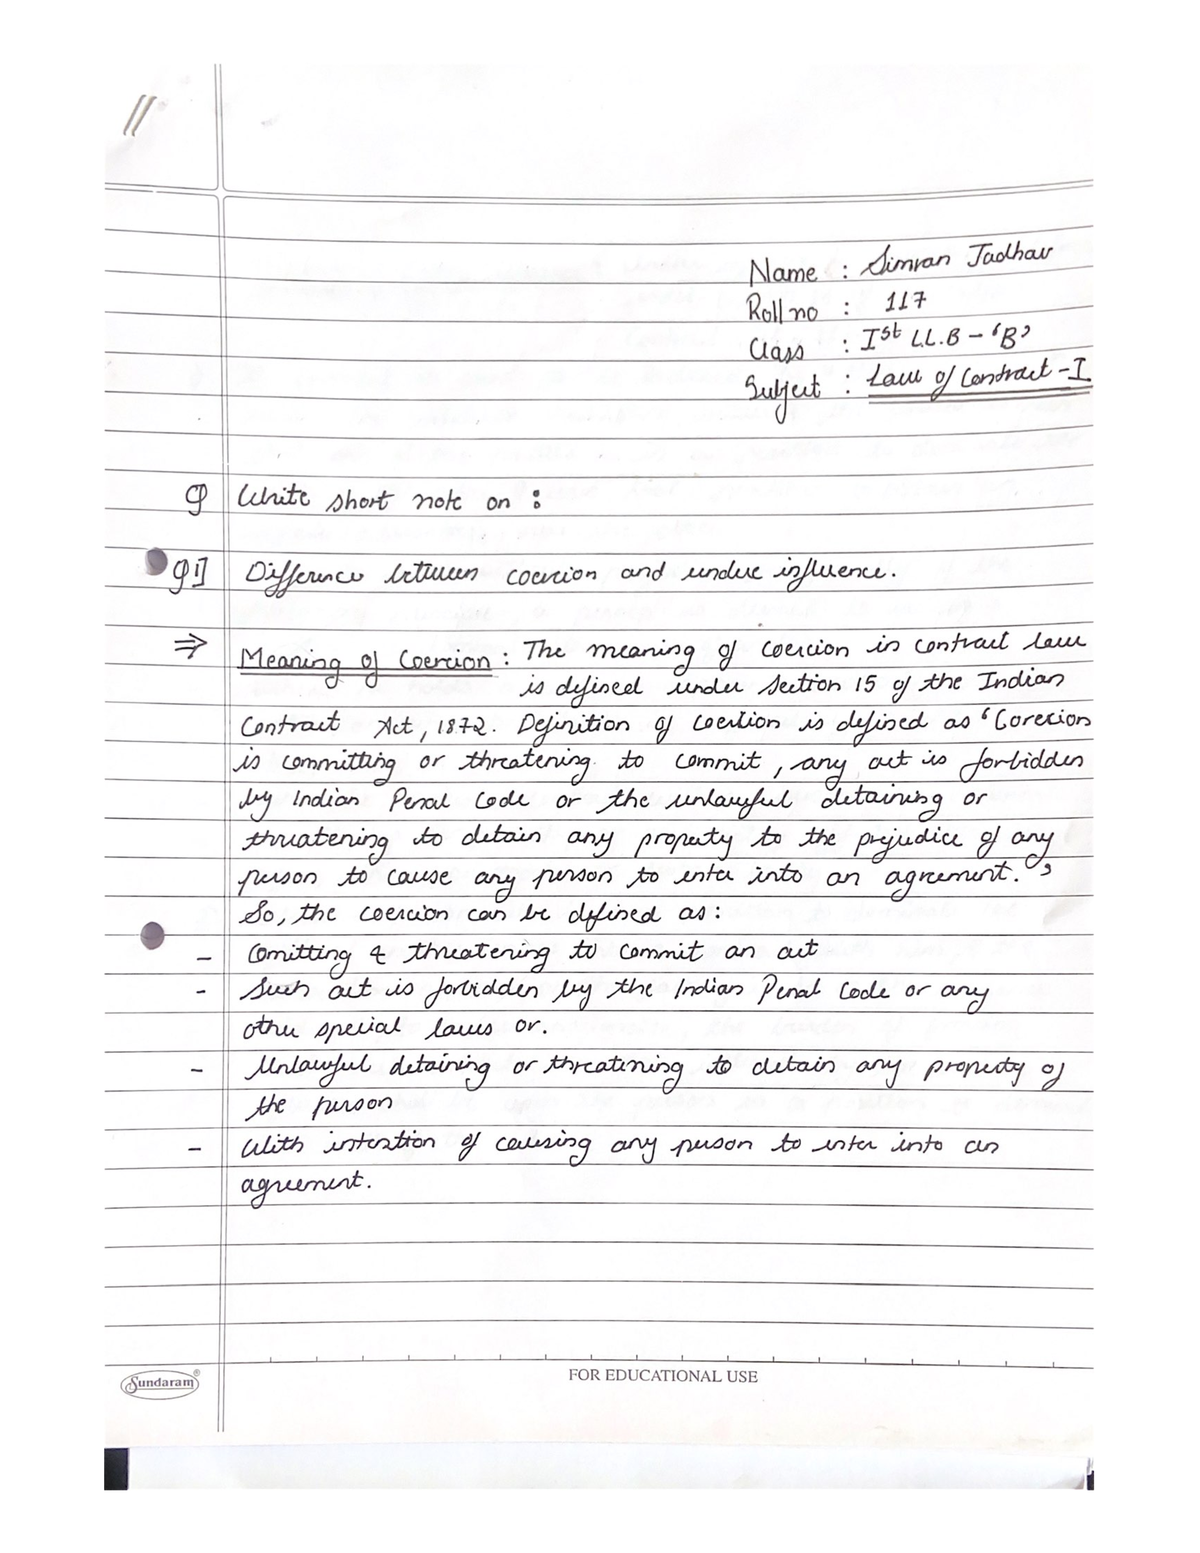 Name : Simran Jadhav
Roll no : 117
Class : Ist LL.B – 'B'
Subject : Law of Contract - I
Q Write short note on :
Q1] Difference between coercion and undue influence.
⇒ Meaning of Coercion : The meaning of coercion in contract law
is defined under Section 15 of the Indian
Contract Act, 1872. Definition of coertion is defined as 'Corecion
is committing or threatening to commit, any act is forbidden
by Indian Penal Code or the unlawful detaining or
threatening to detain any property to the prejudice of any
person to cause any person to enter into an agreement.'
So, the coercion can be defined as:
- Comitting & threatening to commit an act
- Such act is forbidden by the Indian Penal Code or any
other special laws or.
- Unlawful detaining or threatining to detain any property of
the person
- With intention of causing any person to enter into an
agreement.
Sundaram®
FOR EDUCATIONAL USE